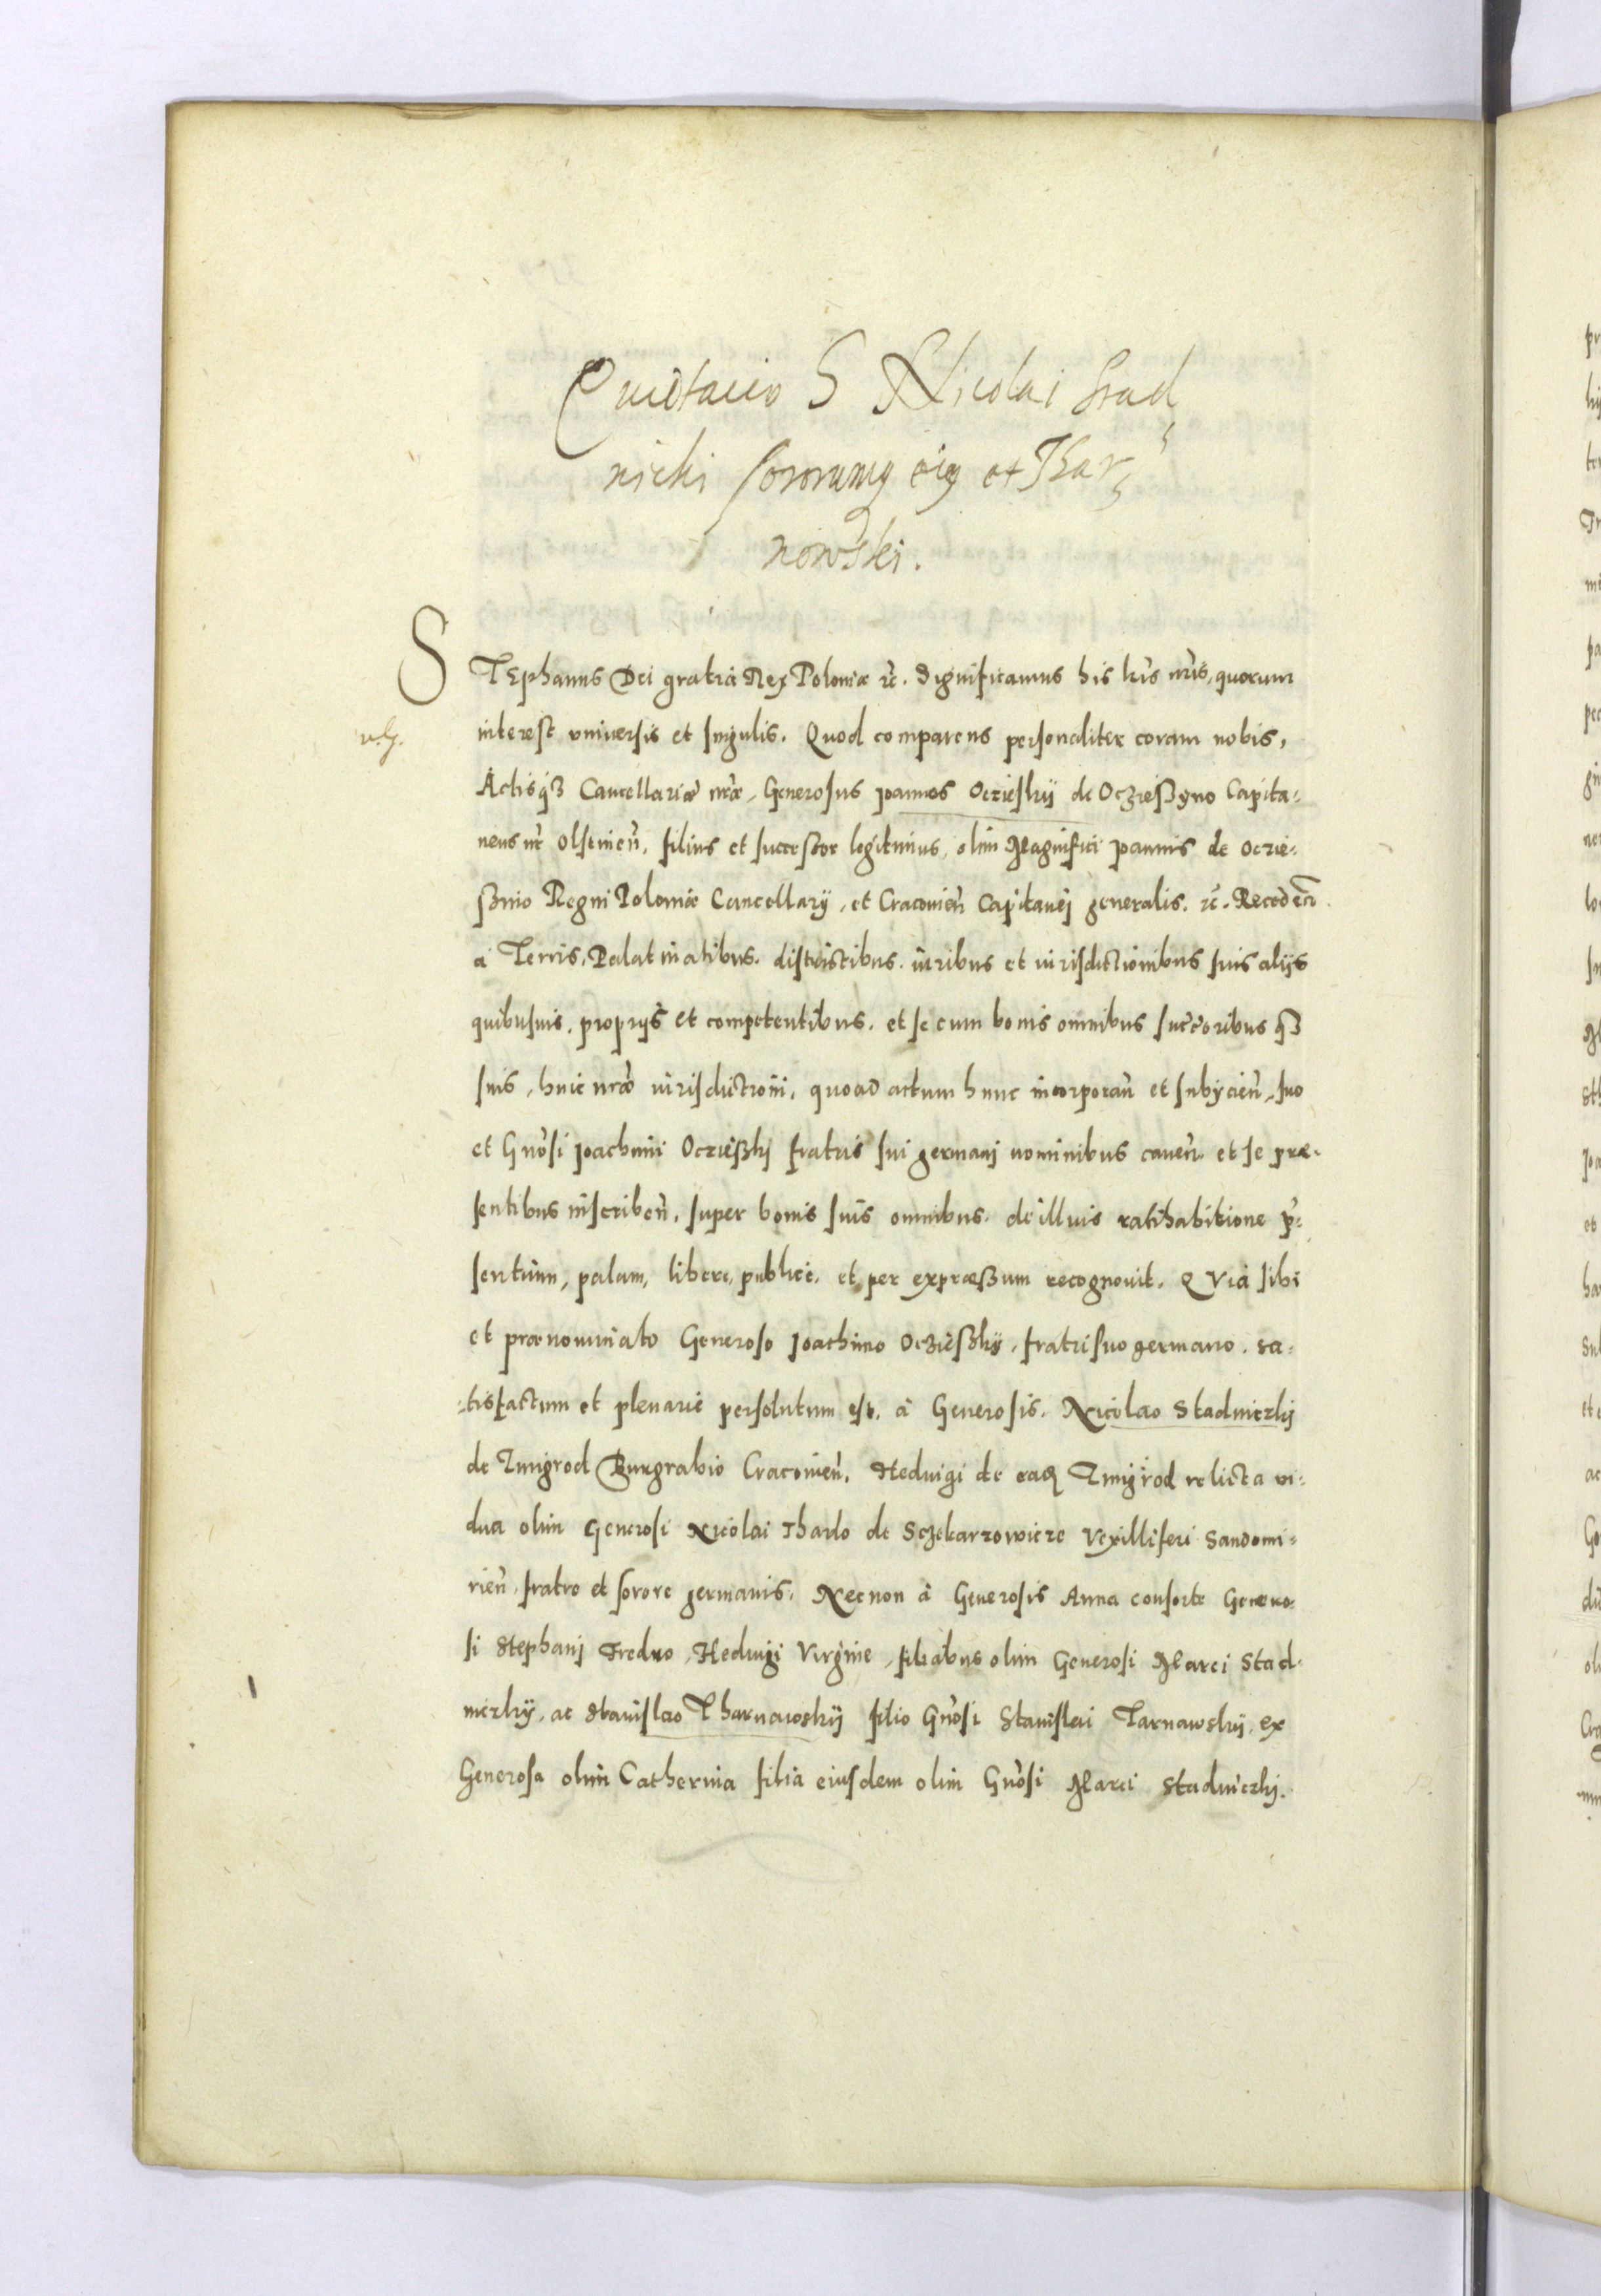 Quietacio G Nicolai Stad
nicki sororumq eiq et Thar
nowski.
STEphanus Dei gratia Rex Poloniæ rc̃. Significamus his lr̃is nr̃is, quorum
interest vniuersis et singulis. Quod comparens personaliter coram nobis,
Actisq3 Cancellariæ nr̃æ, Generosus Joannes Oczieskÿ de Oczießyno Capita=
neus nr̃ Olstinieñ. filius et successor legitimus, olim Magnifici Joannis de Oczie=
ßino Regni Poloniæ Cancellarÿ, et Cracovieñ Capitanej generalis. rc̃. Recedeñ
à Terris, Palatinatibus. districtibus. iuribus et iurisdictionibus suis alÿs
quibusuis, proprÿs et competentibus. et se cum bonis omnibus succ̃oribus q3
suis, huic nr̃æ iurisdictioni, quoad actum hunc incorporañ et subÿcieñ, suo
et Gñosi Joachimi Ocziesßkj fratris sui germanj nominibus caueñ. et se præ=
sentibus inscribeñ. super bonis suis omnibus. de illius ratihabitione p̃=
sentium, palam, libere, publice. et per expræßum recognouit. QVia sibi
et prænominato Generoso Joachimo Oczießkÿ, fratri suo germano. sa=
=tisfactum et plenarie persolutum est. à Generosis. Nicolao Stadniczkj
de Zmigrod Burgrabio Cracovieñ. Heduigi de eadẽ Zmigrod relicta vi=
dua olim Generosi Nicolai Tharlo de Sczekarzowicze Vexilliferi Sandomi=
rieñ. fratre et sorore germanis. Necnon à Generosis Anna consorte Genero=
si Stephanj Fredro, Heduigi Virgine, filiabus olim Generosi Marci Stad=
niczkÿ, ac Stanislao Tharnawskÿ filio Gñosi Stanislai Tarnawskÿ. ex
Generosa olim Catherina filia eiusdem olim Gñosi Marci Stadniczkj.